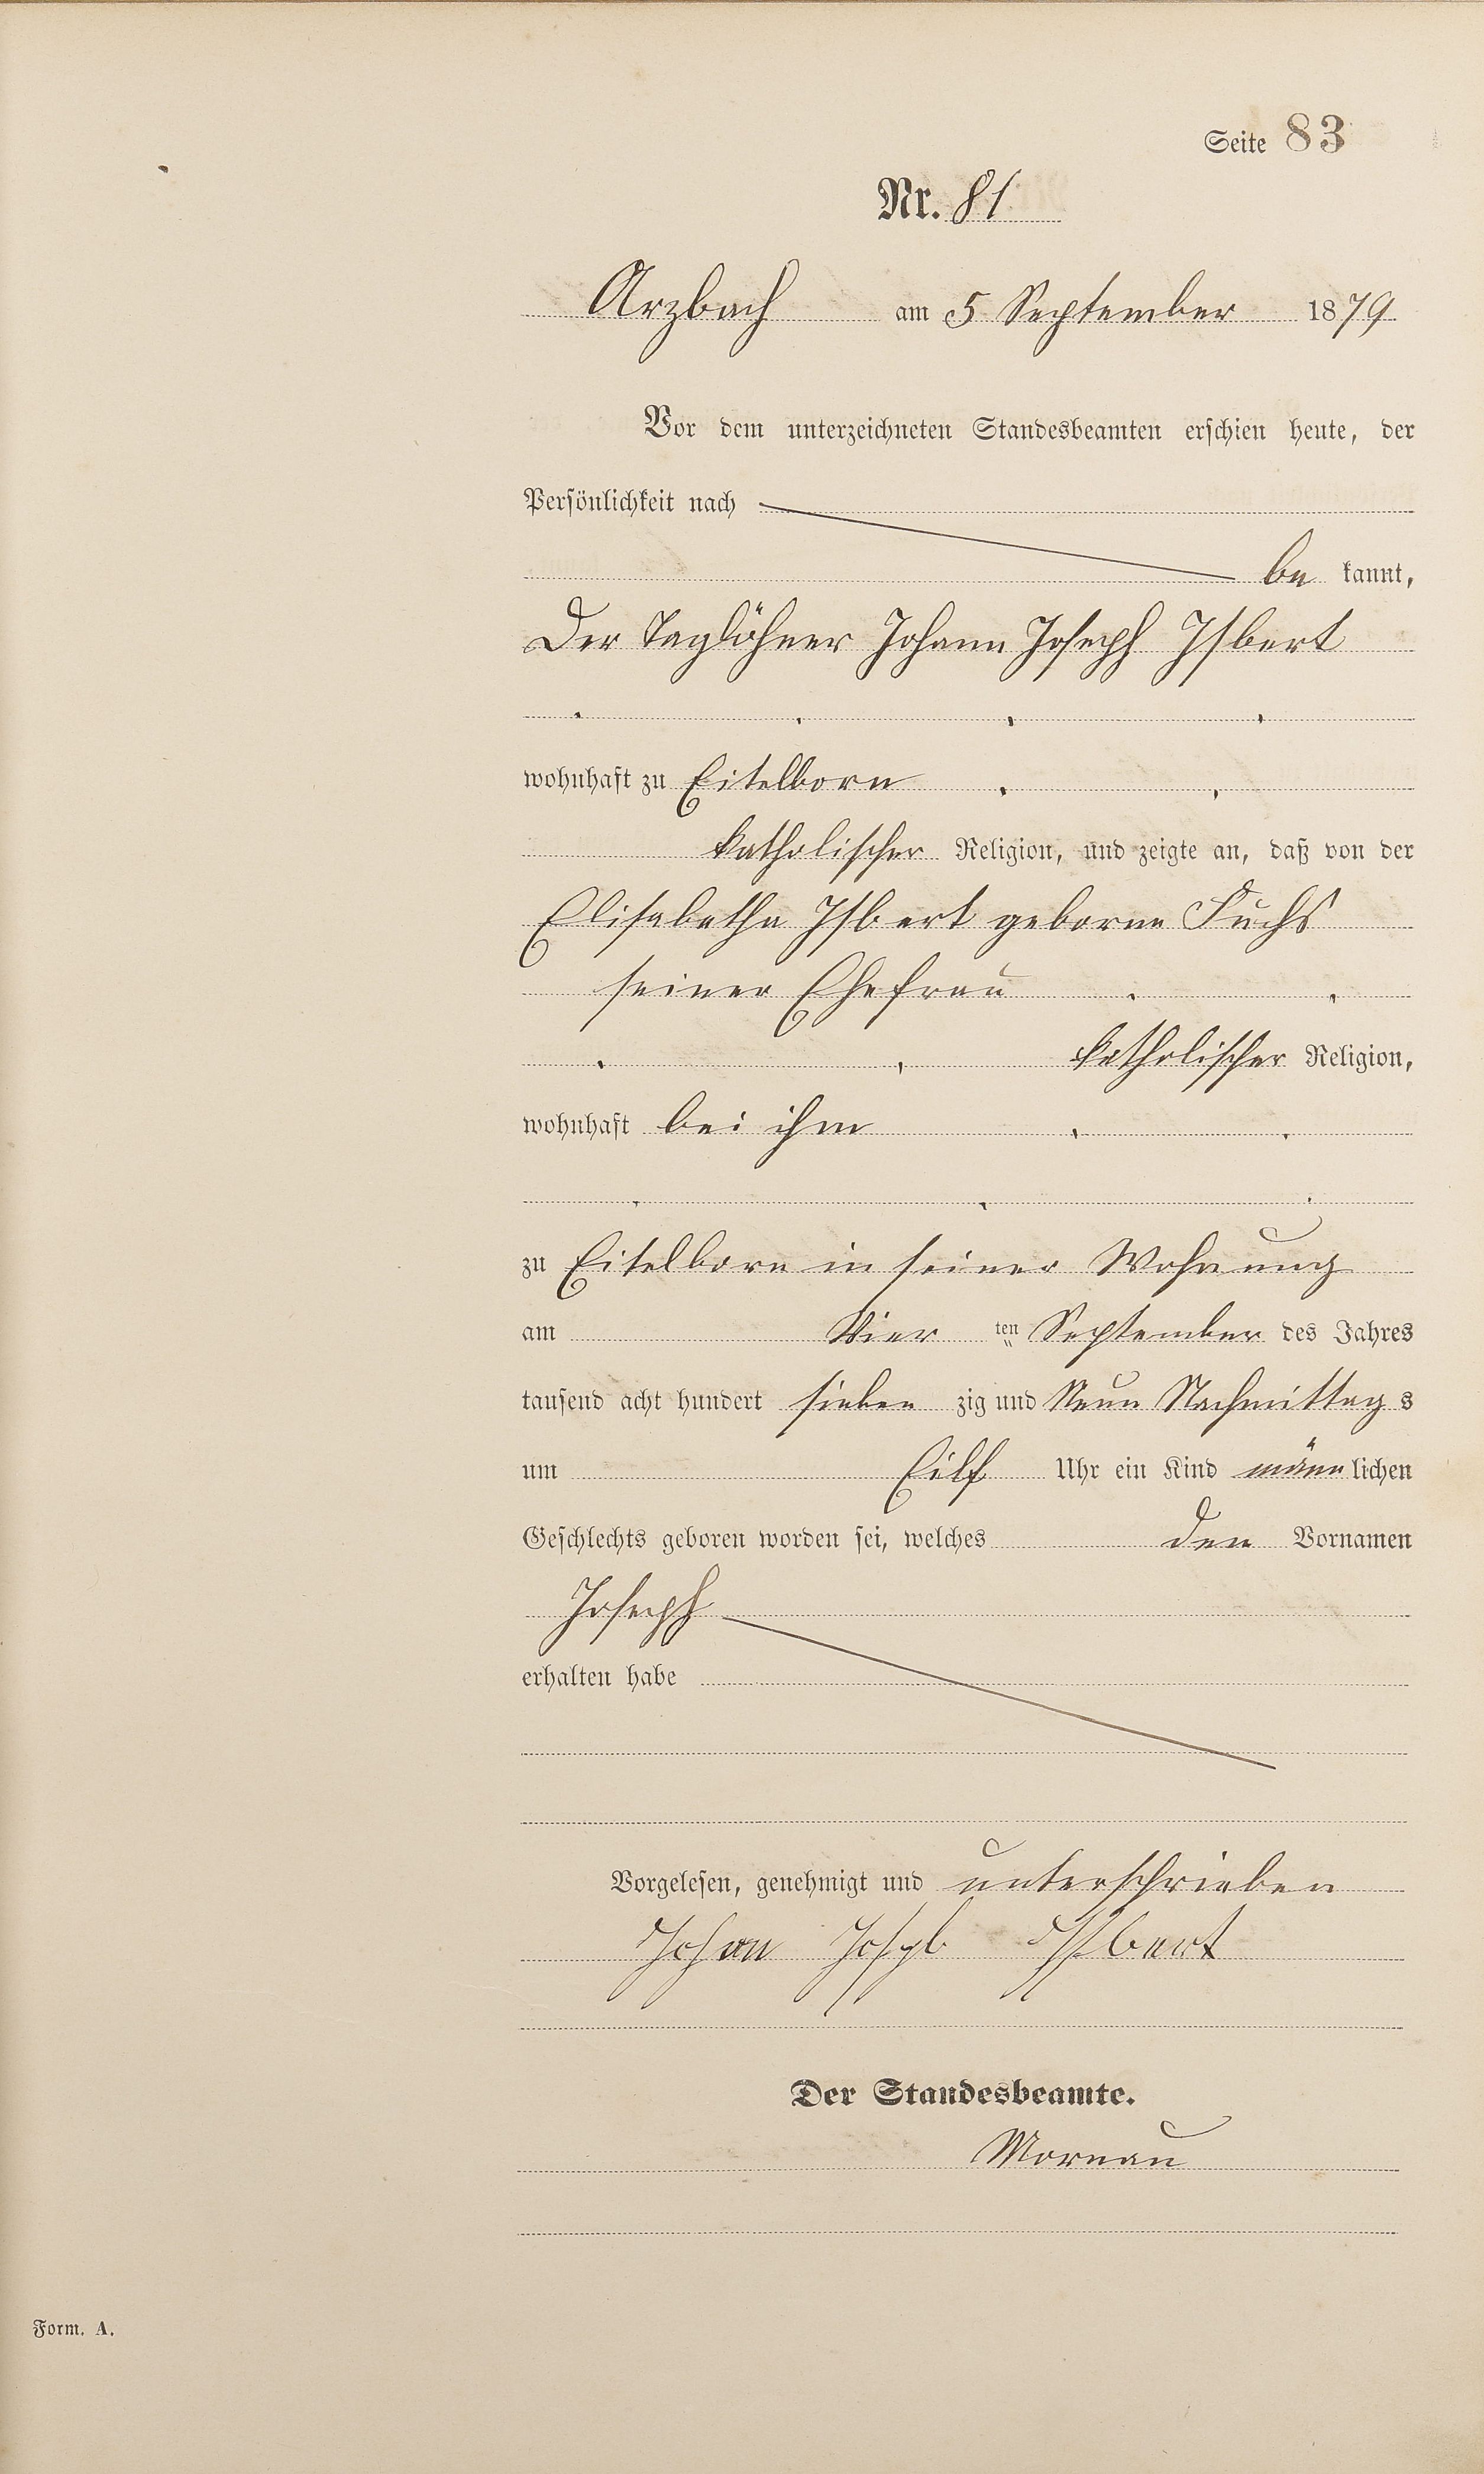 Seite 83
Nr. 81
Arzbach am 5 September 1879
Vor dem unterzeichneten Standesbeamten erschien heute, der
Persönlichkeit nach
be kannt,
Der Taglöhner Johann Joseph Isbert
wohnhaft zu Eitelborn
katholischer Religion, und zeigte an, daß von der
Elisabetha Isbert geborne Fuchs
seiner Ehefrau
katholischer Religion,
wohnhaft bei ihm
zu Eitelborn in seiner Wohnung
am Vier ten September des Jahres
tausend acht hundert sieben zig und Neun Nachmittag s
um Eilf Uhr ein Kind männ lichen
Geschlechts geboren worden sei, welches den Vornamen
Joseph
erhalten habe
Vorgelesen, genehmigt und unterschrieben
Johan Josepb Isbert
Der Standesbeamte.
Mornau
Form. A.